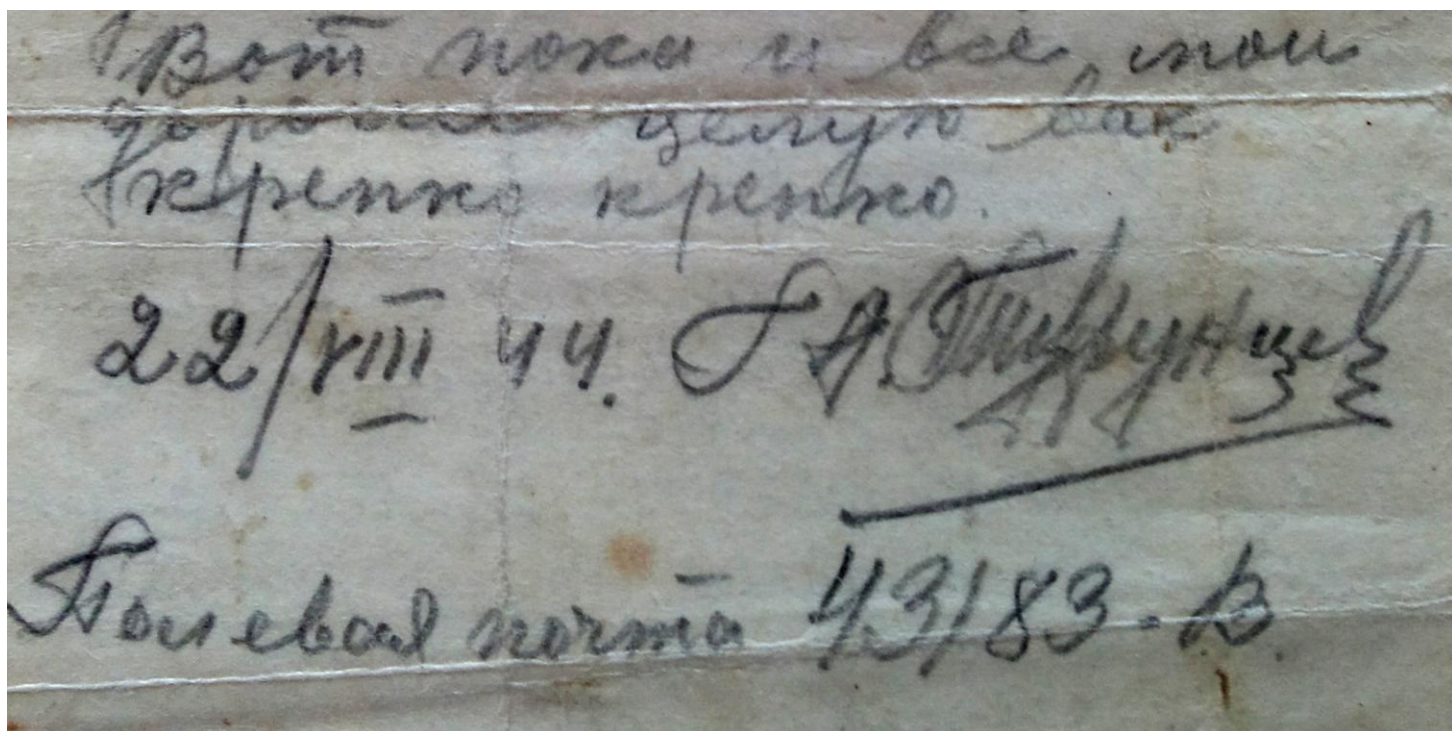 Вот пока и все, мои
дорогие целую вас
крепко крепко.
22/VIII 44.
Полевая почта 43183-В.